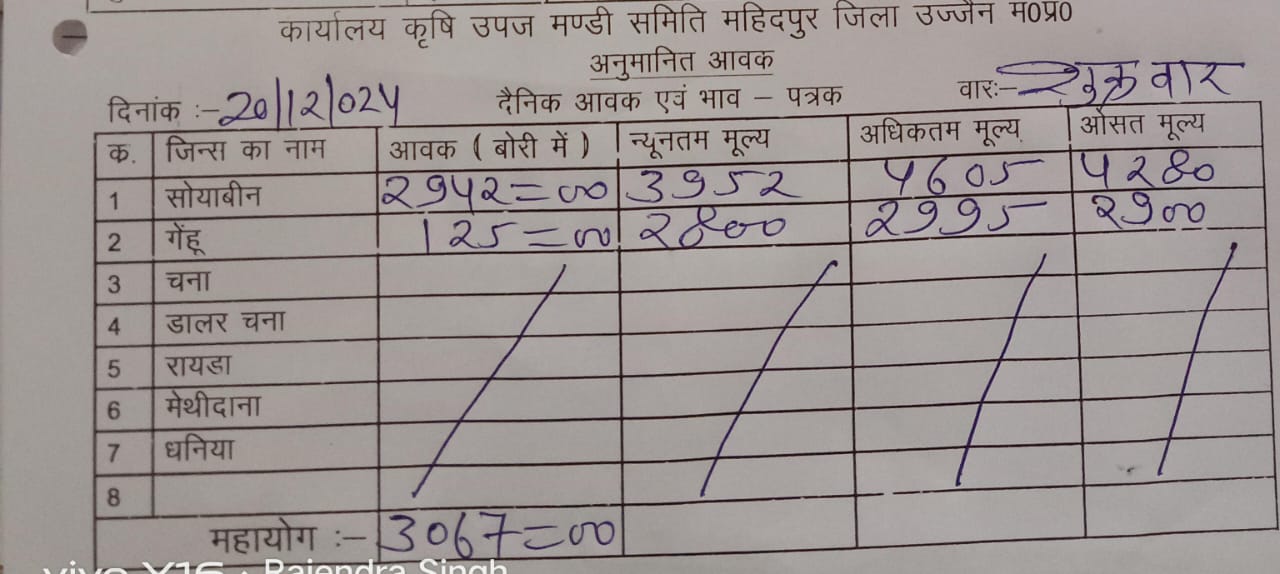 कार्यालय कृषि उपज मण्डी समिति महिदपुर जिला उज्जैन म0प्र0
अनुमानित आवक
दिनांक :- 20/12/024 दैनिक आवक एवं भाव – पत्रक वारः- शुक्रवार
क. जिन्स का नाम आवक ( बोरी में ) न्यूनतम मूल्य अधिकतम मूल्य औसत मूल्य
1 सोयाबीन 2942=00 3952 4605 4280
2 गेंहू 125=00 2800 2995 2900
3 चना
4 डालर चना
5 रायडा
6 मेथीदाना
7 धनिया
8
महायोग :- 3067=00
vivo Y16 · Rajendra Singh